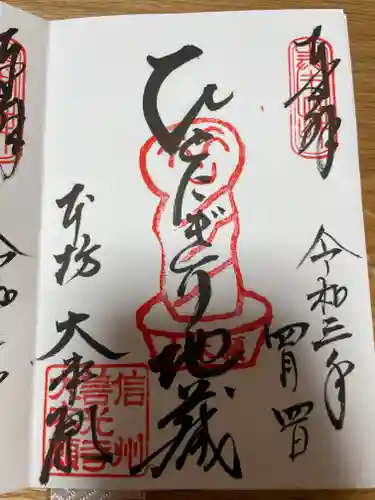 奉拝
令和三年
四月四日
ひとにぎり地蔵
本坊
大本願
信州
善光寺
大本願